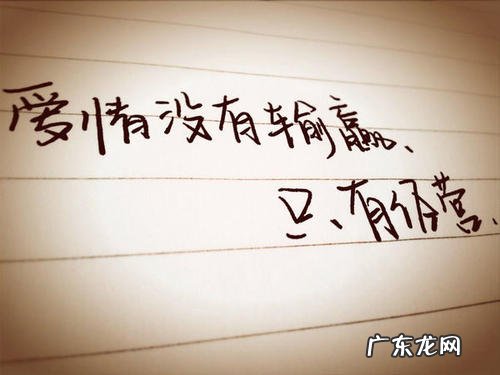 爱情没有输赢、
只、有经营、
广东龙网